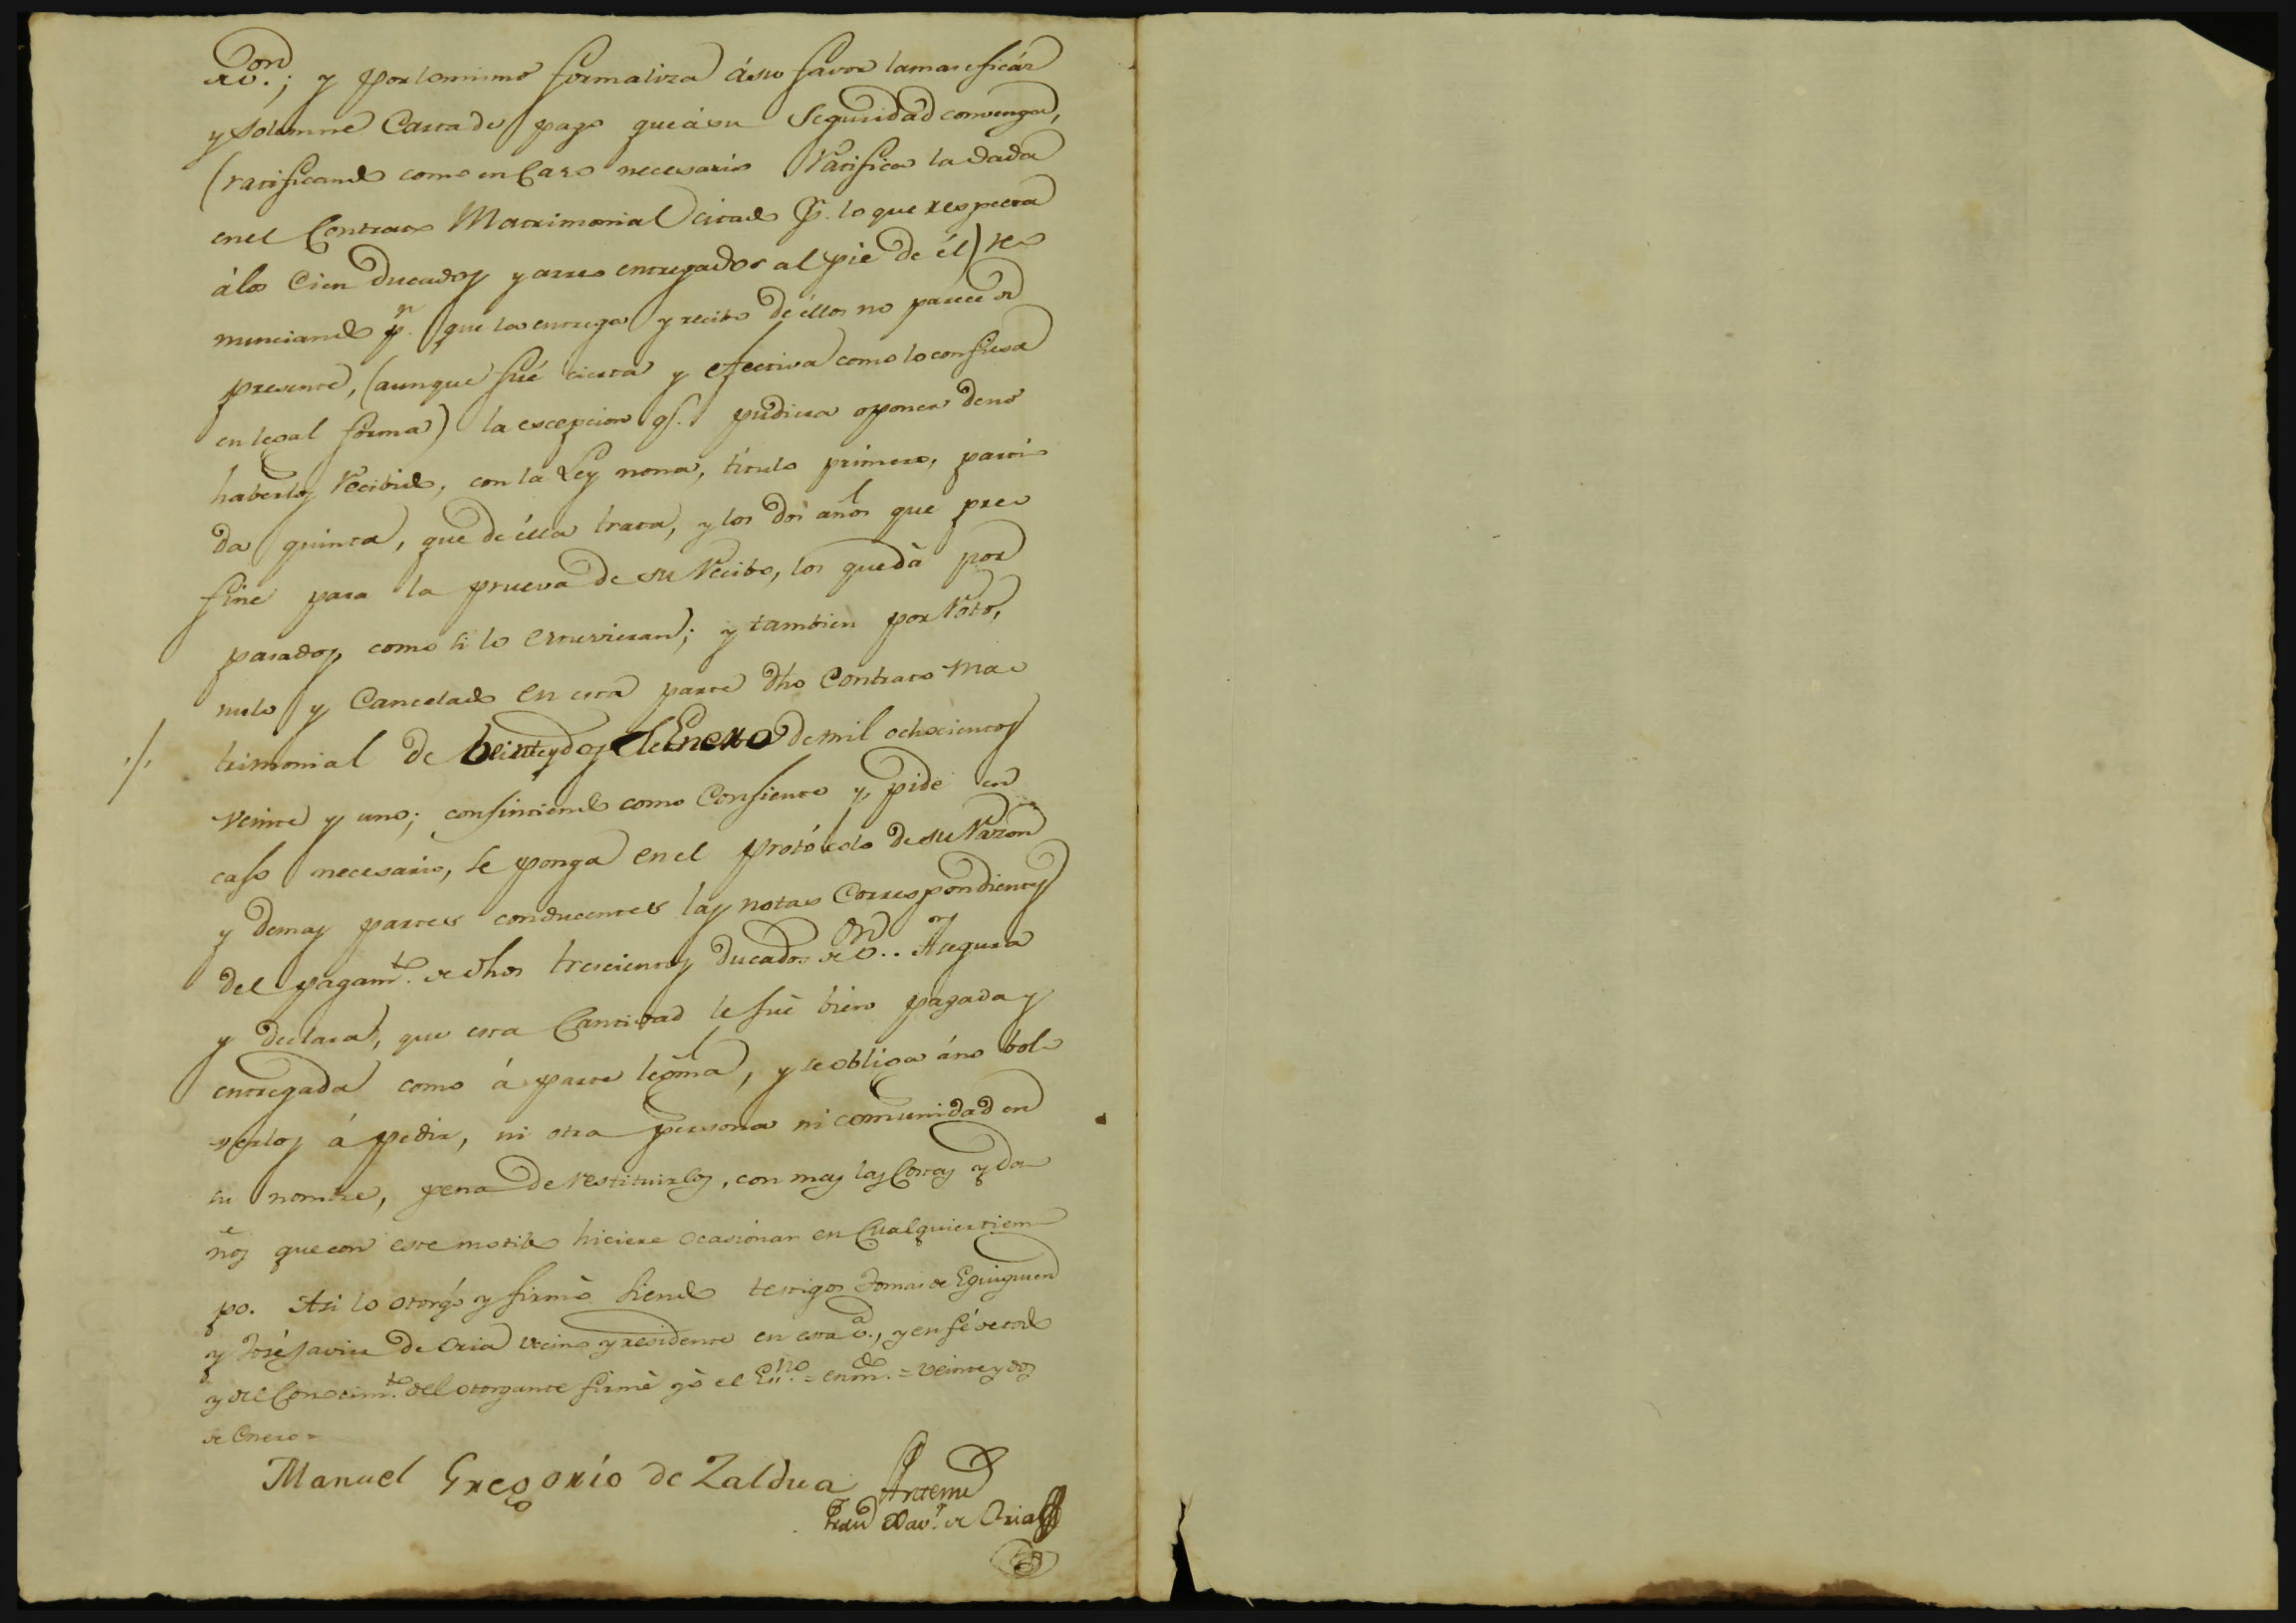 de von.; y por lo mismo formaliza á su favor la mas eficáz
y solemne Carta de pago que á su Seguridad convenga,
(ratificando como en Caso necesario Ratifica la dada
en el Contrato Matrimonial citado pr. lo que respecta
á los Cien Ducados y arreo entregados al pie de él) re-
nunciando pr. que la entrega y recibo de éllos no parece de
presente, (aunque fué cierta y efectiva como lo confiesa
en legal forma) la escepcion qe. pudiera oponer de no
haberlos Recibido, con la Ley nona, titulo primero, parti-
da quinta, que de élla trata, y los dos años que pre-
fine para la prueva de su Recibo, los que dá por
pasados, como si lo estuvieran; y tambien por Roto,
nulo y Cancelado en esta parte dho Contrato Ma-
trimonial de beinte y dos de Enero de mil ochocientos
veinte y uno; consintiendo como Consiente y pide en
caso necesario, se ponga en el protócolo de su Razon
y demas partes conducentes las notas Correspondientes
del pagamto. de dhos trescientos Ducados de von.. Asegura
y declara, que esta Cantidad le fué bien pagada y
entregada como á parte legma, y se obliga á no bol-
verlos á pedir, ni otra persona ni comunidad en
su nombre, pena de restituirlos, con mas las Costas y da-
ños que con este motibo hiciere ocasionar en Cualquier tiem-
po. Asi lo otorgó y firmó siendo testigos Tomas de Eguiguren
y José Javier de Oria vecino y residente en esta va., y en fé de todo
y del Conocimto. del otorgante firmé yo el Esno. = enmdo. = veinte y dos
de Enero =
Manuel Gregorio de Zaldua
Antemi
Juan Xavr. de Oria